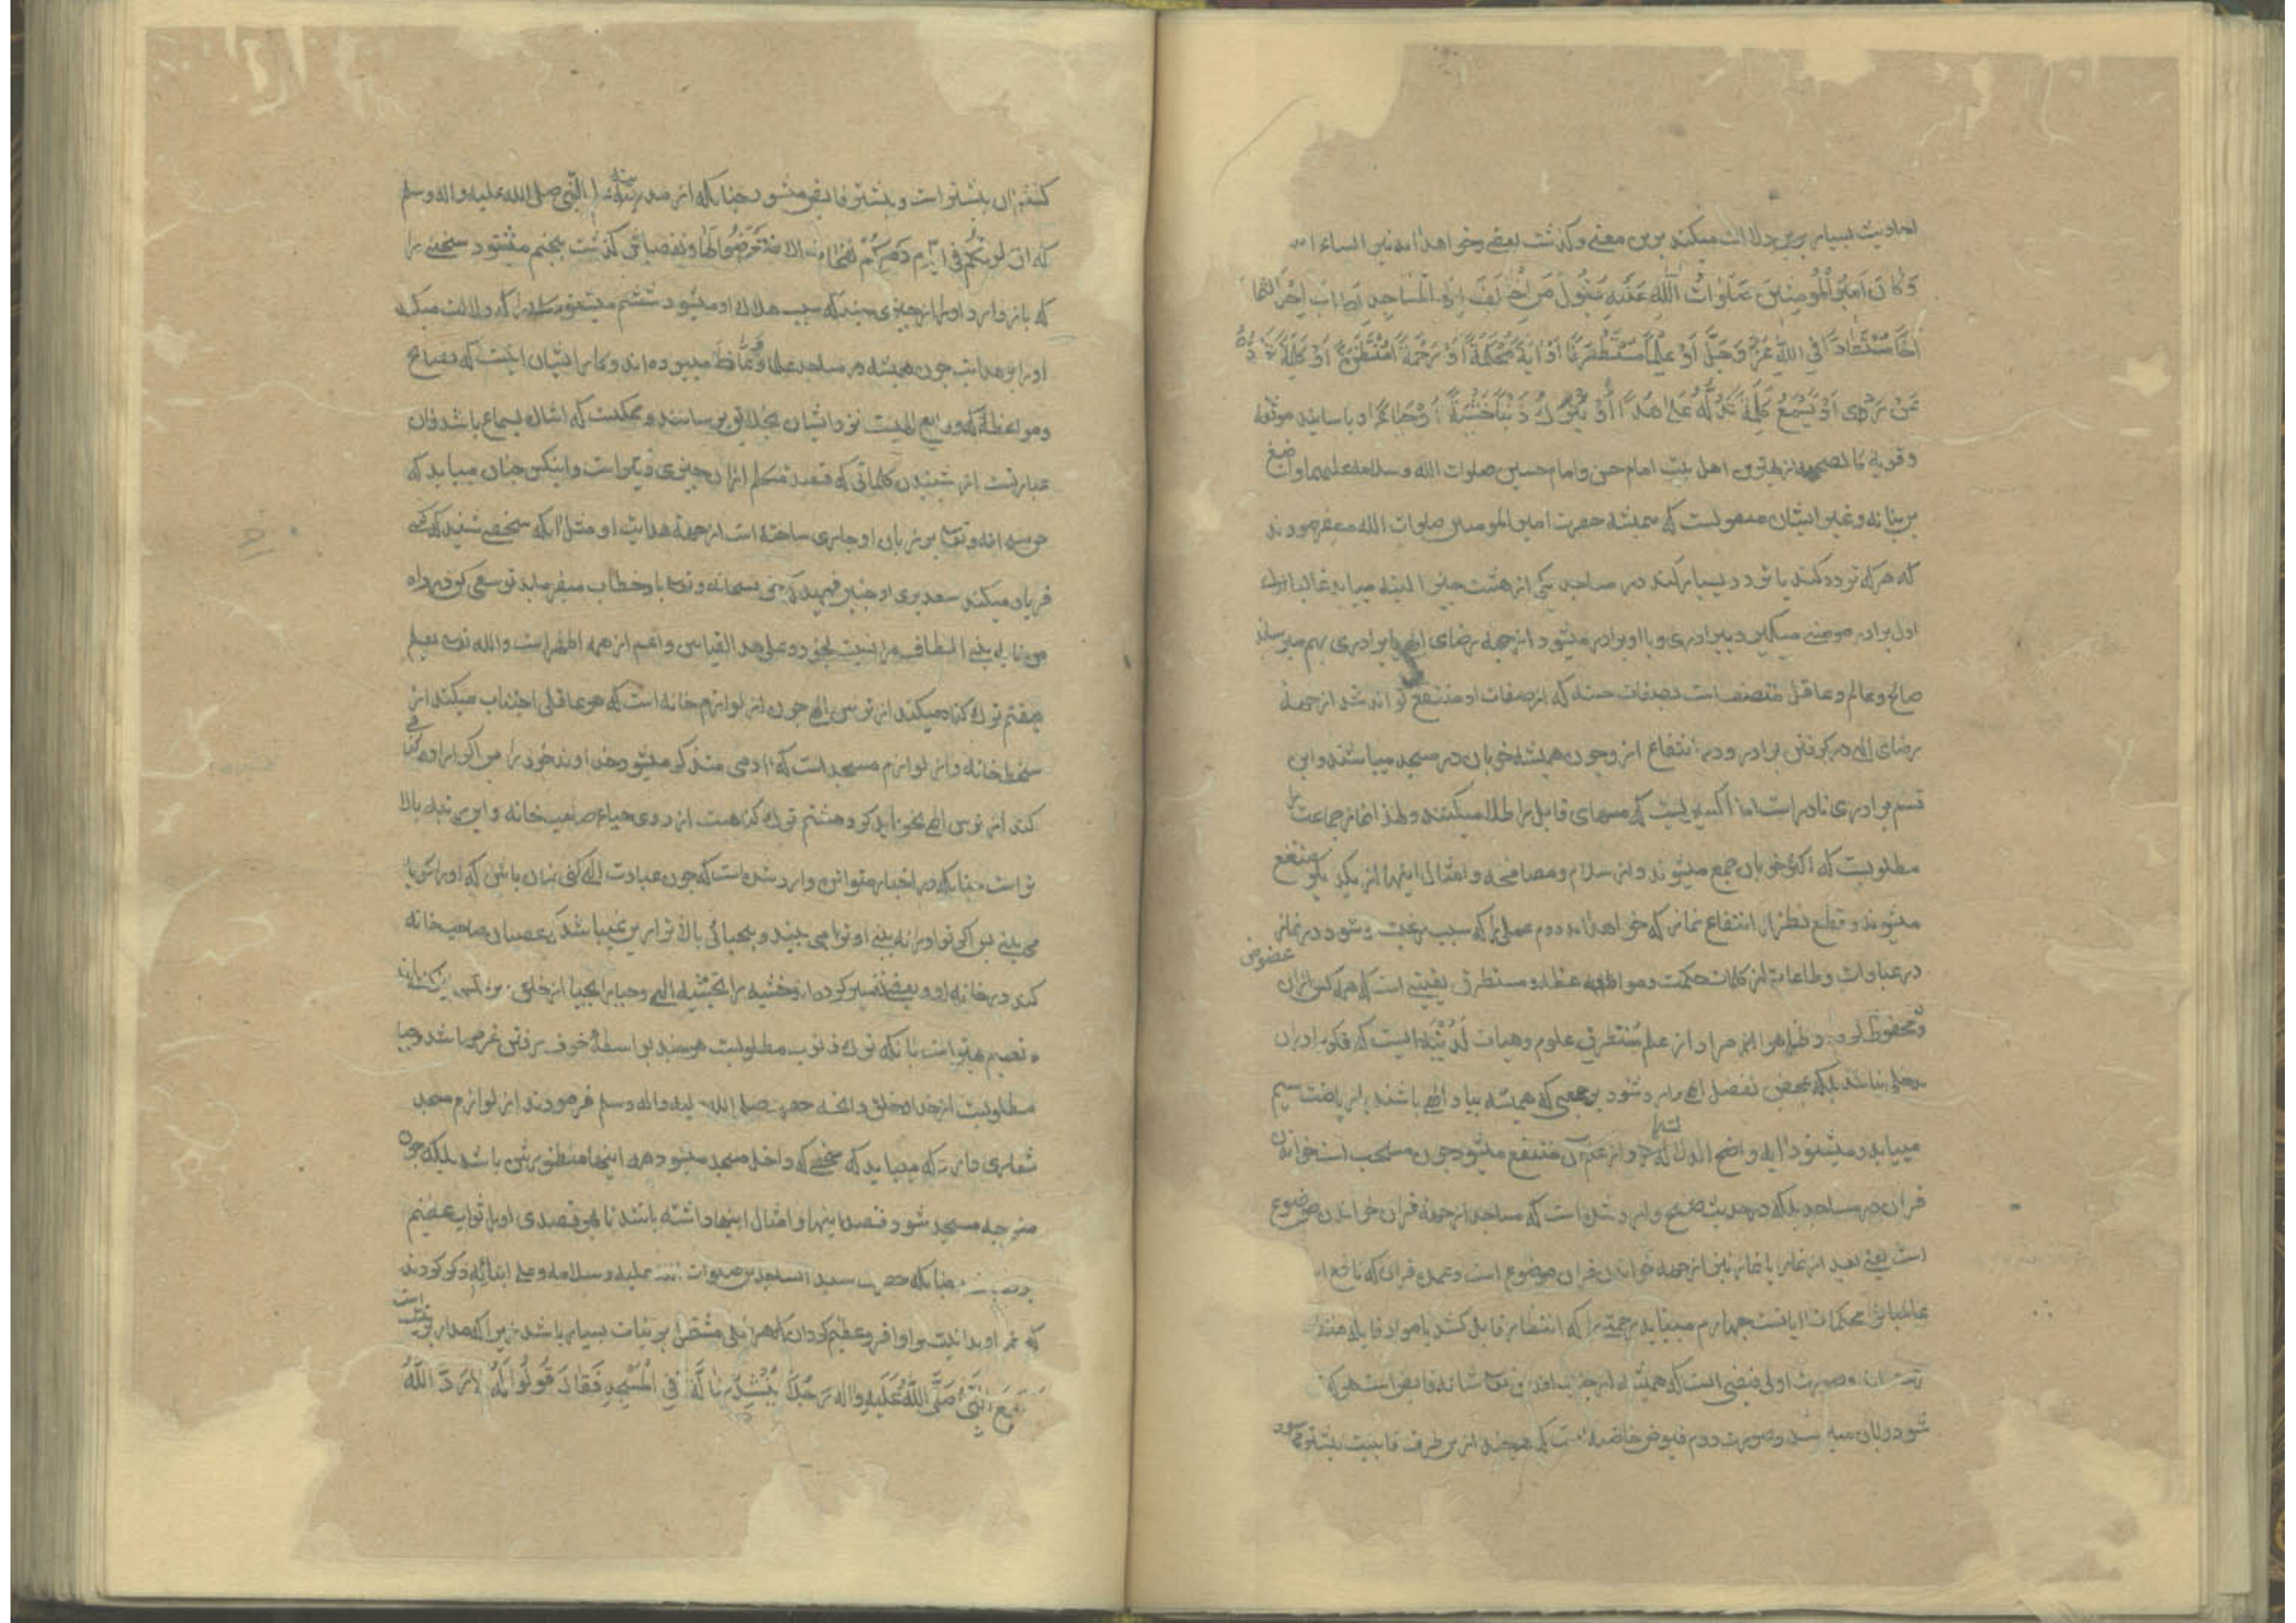 احادیث بسیار برین دلالت میکند برین معنی وکذشت بعضی وخواهد امد نیز ان شاء الله
وَكَانَ اَمِيرُ الْمُؤْمِنِينَ صَلَوَاتُ اللهِ عَلَيْهِ يَقُولُ مَنِ اخْتَلَفَ اِلَى الْمَسَاجِدِ اَصَابَ اِحْدَى الثَّمَا
اَخًا مُسْتَفَادًا فِي اللهِ عَزَّ وَجَلَّ اَوْ عِلْمًا مُسْتَطْرَفًا اَوْ اٰيَةً مُحْكَمَةً اَوْ رَحْمَةً مُنْتَظَرَةً اَوْ كَلِمَةً تَرُدُّهُ
عَنْ رَدًى اَوْ يَسْمَعُ كَلِمَةً تَدُلُّهُ عَلَى هُدًى اَوْ يَتْرُكُ ذَنْبًا خَشْيَةً اَوْ حَيَاءً و باسانید موثقه
وقویه کالصحیحه از بهترین اهل بیت امام حسن وامام حسین صلوات الله وسلامه علیهما واصبغ
بن نباته وغیر ایشان منقولست که همیشه حضرت امیر المومنین صلوات الله علیه میفرمودند
که هر که تردد کند یا تردد بسیار کند در مساجد یکی از هشت چیز البته مییابد غالبا
اول برادر مومنی میگیرد ببرادری وبا او برادر میشود از جهة رضای الهی یا برادری بهم میرساند
صالح وعالم وعاقل متصف است بصفات حسنه که از صفات او منتفع تواند شد از جهة
رضای الهی در کرفتن برادر ودر انتفاع از و چون همیشه خوبان در مسجد میباشند واین
قسم برادری نادر است اما اکسیریست که مسهای قابل را طلا میکنند ولهذا نماز جماعت
مطلوبست که اکثر خوبان جمع میشوند واز سلام ومصافحه وامثال اینها از یکدیکر منتفع
میشوند وقطع نظر از انتفاع نماز که خواهد امد دوم علمی را که سبب رغبت وشود در نماز
در عبادات وطاعات از کلمات حکمت ومواعظه ومستطرف یعنیست که هر کس از ان
محظوظ کردد وظاهرا مراد از علم مستطرف علوم وهبات لدنیه است که فکر را در ان
مدخلی نباشد بلکه بمحض تفضل الهی وارد شود بر جمعی که همیشه بیاد الهی باشند بریاضت سیم
مییابد ومیشنود ایه واضح الدلاله را واز ان منتفع میشود چون مستحب است خواندن
قران در مساجد بلکه در حدیث صحیح وارد شده است که مساجد از جهة قران خواندن موضوع
است یعنی بعد از نماز یا نماز نیز از جهة خواندن قران موضوع است وعمده قران که نافع
محکمات ایاتست چهارم مییابد رحمتی را که انتظار قابل کشد یا مواد قابله منتظر
صورت اولی فیضی است که همیشه از جناب اقدس سبحانه فایض است هر که
شود بان میرسد وصورت دوم فیوض خاصه است که هرچند از ین طرف قابلیت بیشتر میشود
کشش ان بیشتر است وبیشتر فایض میشود چنانکه از سید النبی صلی الله علیه واله وسلم
که ان لربکم فی ایام دهرکم نفحات الا فتعرضوا لها وتفصیلش کذشت پنجم میشنود سخنی را
که باز دارد او را از چیزی چند که سبب هلاک او میشود ششم میشنود سخنی را که دلالت میکند
او را بر هدایت چون همیشه در مساجد علما ووعاظ میبوده اند وکار ایشان اینست که نصایح
ومواعظ که ودایع الهیست نزد ایشان بخلایق برسانند وممکنست که اشاره بسماع باشد وان
عبارتست از شنیدن کلماتی که قصد متکلم از ان چیزی دیکر است واینکس چنان مییابد که
حق سبحانه وتعالی بر زبان او جاری ساخته است از جهة هدایت او مثل انکه شخصی شنید که کسی
فریاد میکند سعتر بری او چنین فهمید که حق سبحانه وتعالی با و خطاب میفرماید تو سعی کن در راه
من تا به بینی الطاف مرا نسبت بخود وعلی هذا القیاس واعم از همه اظهر است والله تعالی یعلم
هفتم ترک کناه میکند از ترس الهی چون از لوازم خانه است که هر عاقلی اجتناب میکند از
سخط صاحب خانه واز لوازم مسجد است که ادمی متذکر میشود خداوند خود را پس اکر اراده کناه
کند از ترس الهی نخواهد کرد هشتم ترک کناهست از روی حیاء صاحب خانه واین رتبه بالا
تر است چنانکه در اخبار متواتره وارد شده است که چون عبادت الهی کنی چنان باش که او را کویا
می بینی پس اکر تو او را نه بینی او ترا می بیند وبیحیائی بالاتر از ین نمیباشد که عصیان صاحب خانه
کند در خانه او وبعضی تفسیر کرده اند خشیه را بخشیه الهی وحیا را بحیا از خلق
وتعمیم بهتر است بانکه ترک ذنوب مطلوبست هرچند بواسطه خوف رفتن عرض باشد وحیا
مطلوبست از خدا وخلق وانچه حضرت صلی الله علیه واله وسلم فرمودند از لوازم مسجد
شماری دارد که مییابد که شخصی که داخل مسجد میشود همه اینها منظورش باشد بلکه چون
متوجه مسجد شود قصد اینها وامثال اینها داشته باشد تا بهر قصدی او را ثواب عظیم
چنانکه حضرت سید الساجدین صلوات الله علیه وسلامه وعلی ابنائه ذکر کردند
که نماز او بدانیت را وافر وعظیم کردان که هر عملی مشتمل بر نیات بسیار باشد زیرا که مدار بر نیت است
سَمِعَ النَّبِيُّ صَلَّى اللهُ عَلَيْهِ وَاٰلِهِ رَجُلًا يُنْشِدُ ضَالَّةً فِي الْمَسْجِدِ فَقَالَ قُولُوا لَهُ لَا رَدَّ اللهُ